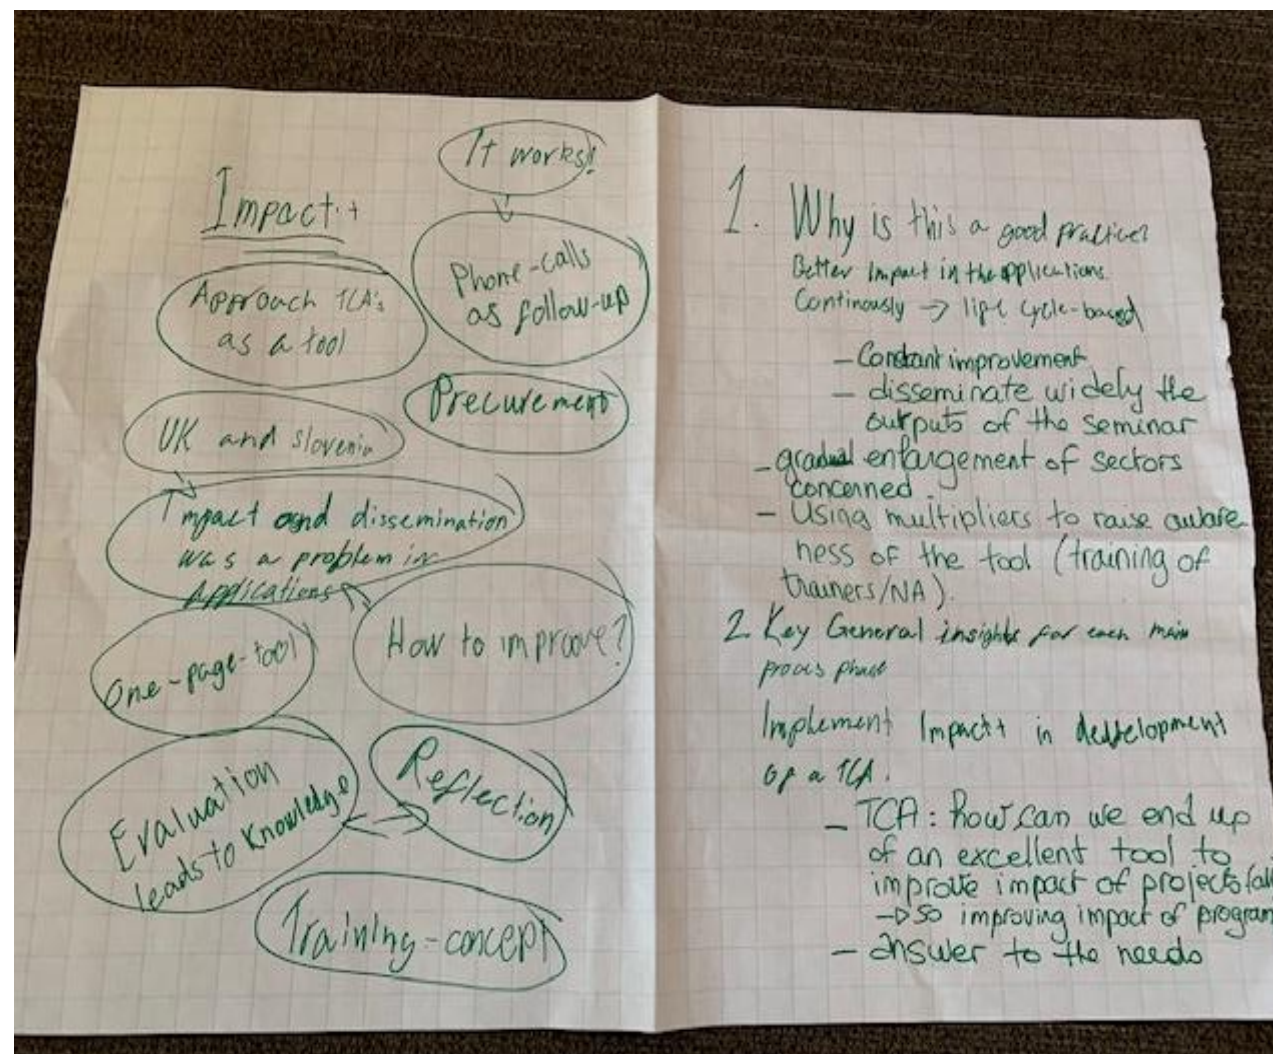 Impact+
It works!
Phone-calls
as follow-up
Approach TCA's
as a tool
Precurement
UK and slovenia
Impact and dissemination
was a problem in
Applications
How to improove?
One-page-tool
Reflection
Evaluation
leads to knowledge
Training-concept
1. Why is this a good practice?
Better impact in the applications
Continously → life cycle-based
- Constant improvement
- disseminate widely the
outputs of the seminar
- gradual enlargement of sectors
concerned.
- Using multipliers to raise aware
ness of the tool (training of
trainers/NA).
2. Key General insights for each main
proces phase
Implement Impact+ in development
of a TCA.
- TCA: how can we end up
of an excellent tool to
improve impact of projects (all
→ so improving impact of program
- answer to the needs